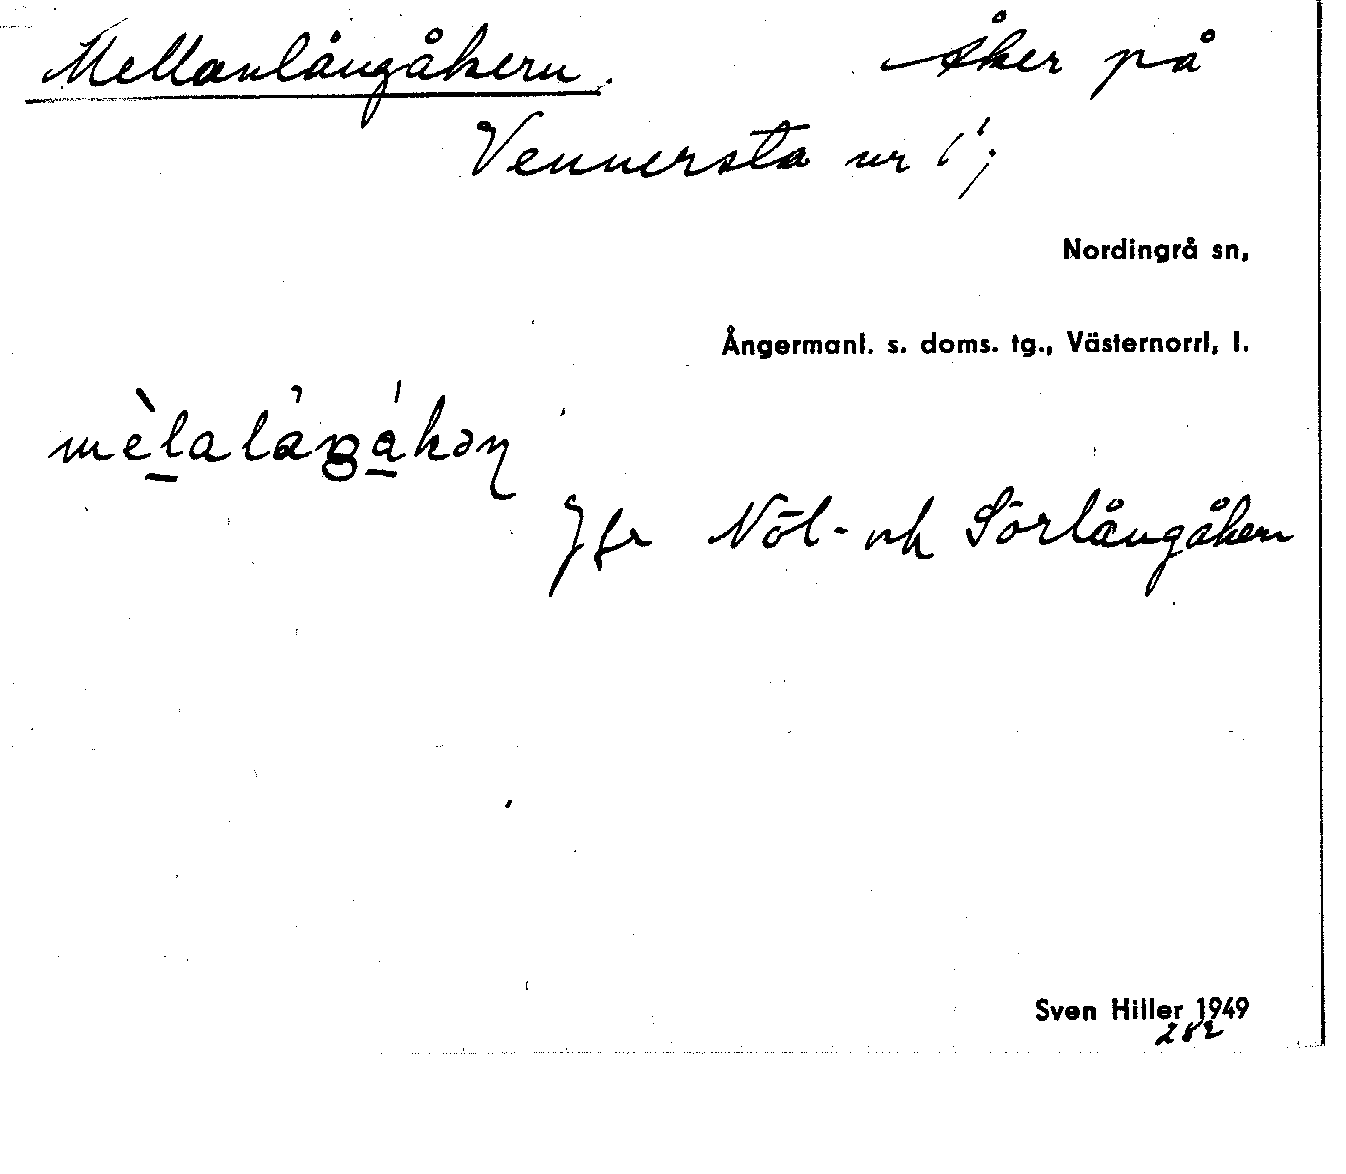 Mellanlångåkern. Åker på
Vennersta nr 1;
Nordingrå sn,
Ångermanl. s. doms. tg., Västernorrl, l.
mèlalåŋåkən
Jfr Nöl- och Sörlångåkern
Sven Hiller 1949
282